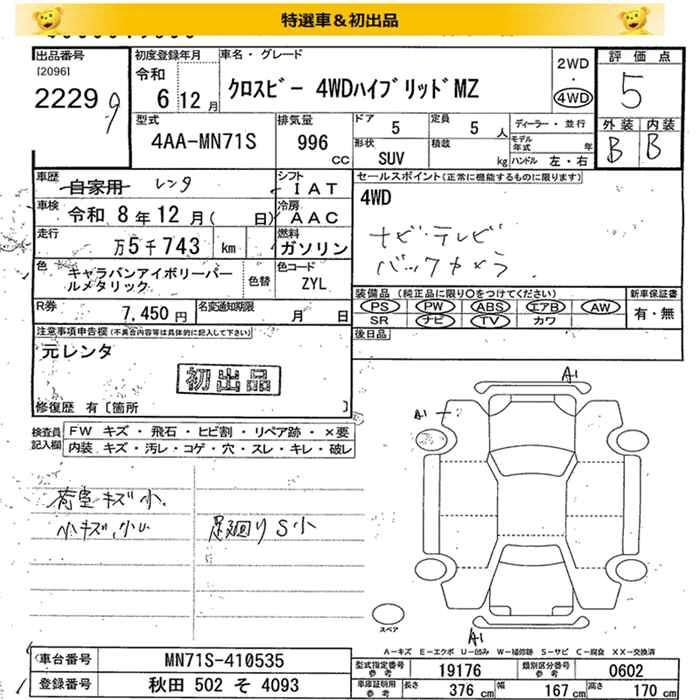 特選車＆初出品
出品番号
[2096]
2229
9
初度登録年月
令和
6 12月
車名・グレード
クロスビー 4WDハイブリッドMZ
2WD
・
4WD
評価点
5
外装 内装
B B
型式
4AA-MN71S
排気量
996
CC
ドア 5
定員 5人
形状 SUV
積載 kg
ディーラー・並行
モデル年式 年
ハンドル 左・右
車歴
自家用 レンタ
シフト
IAT
車検 令和 8年12月( 日)
冷房
AAC
走行 万5千743 km
燃料
ガソリン
色
キャラバンアイボリーパールメタリック
色替
色コード
ZYL
R券 7,450円
名変通知期限 月 日
セールスポイント(正常に機能するものに限ります)
4WD
ナビ・テレビ
バックカメラ
装備品 (純正品に限り○をつけてください)
PS PW ABS エアB AW
SR ナビ TV カワ
新車保証書
有・無
後日品
注意事項申告欄(不具合内容等は具体的に記入して下さい)
元レンタ
初出品
修復歴 有〔箇所 〕
検査員記入欄
FW キズ・飛石・ヒビ割・リペア跡・×要
内装 キズ・汚レ・コゲ・穴・スレ・キレ・破レ
荷室キズ小.
小キズ、小U
足廻りS小
A1
A1
A1
スペア
A－キズ E－エクボ U－凹み W－補修跡 S－サビ C－腐食 XX－交換済
車台番号 MN71S-410535
登録番号 秋田 502 そ 4093
型式指定番号 参考 19176
類別区分番号 参考 0602
車庫証明用 参考 長さ 376 cm 幅 167 cm 高さ 170 cm